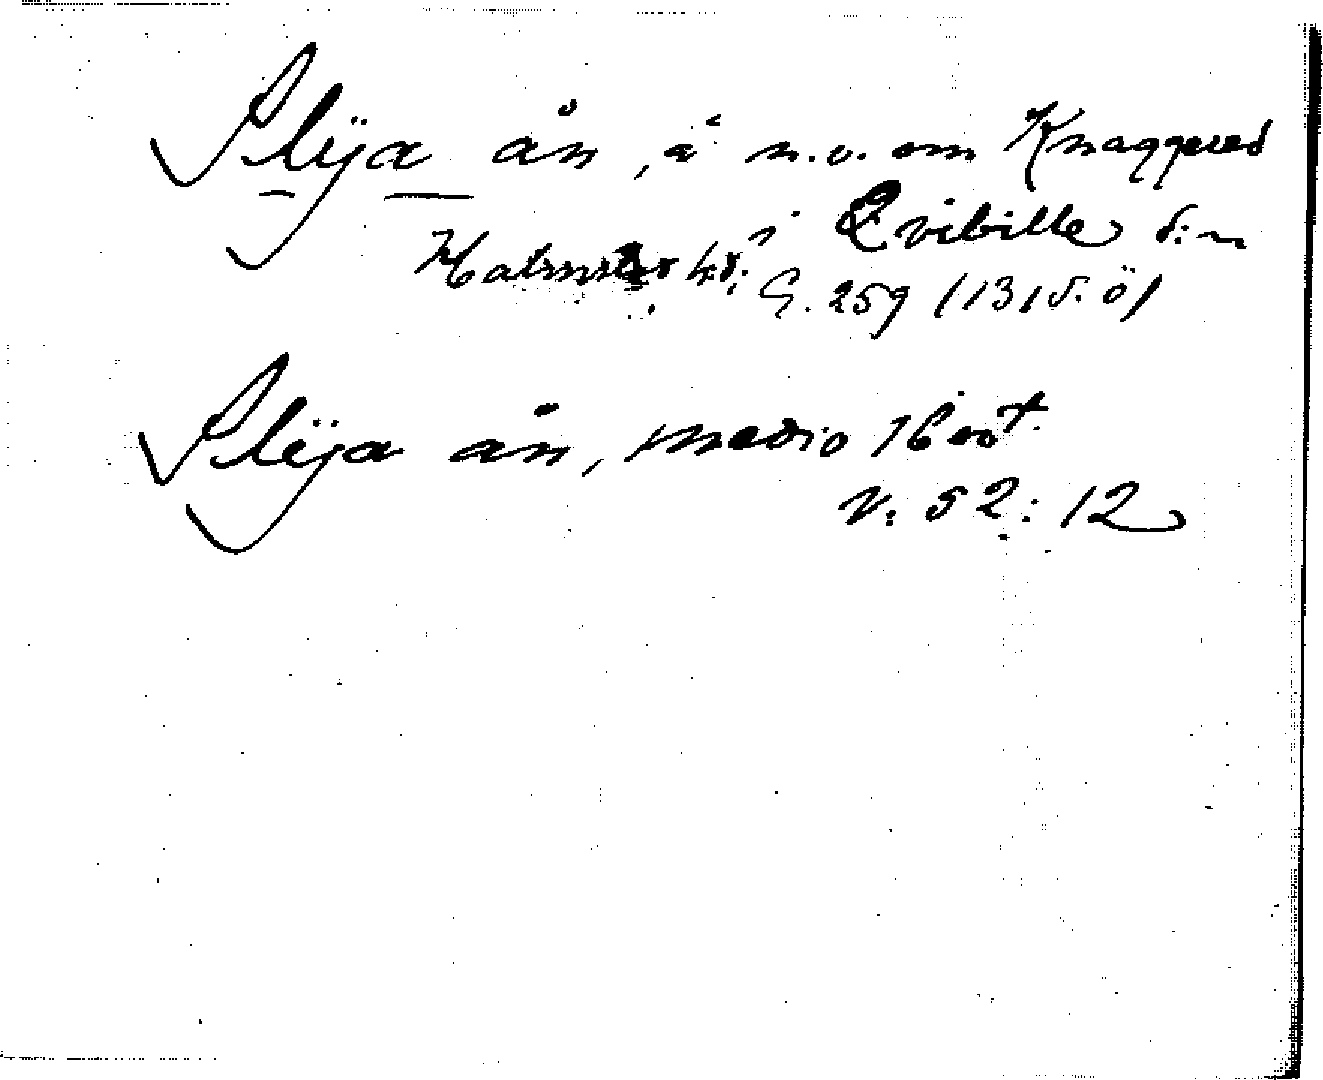 Slÿa ån, å n.v. om Knaggered
i Qvibille s:n
Halmstads hd; G. 259 (1315.ö)
Slÿa ån, medio 1600t.
V. 52:12